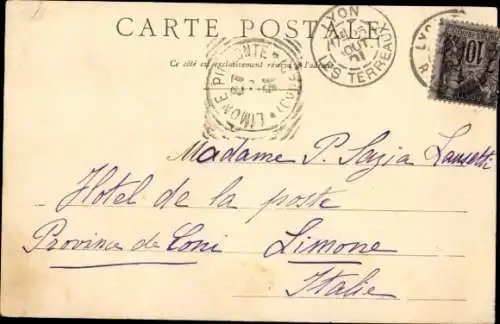 CARTE POSTALE
Ce côté est exclusivement réservé à l'adresse
LYON
LES TERREAUX
AOUT
LIMONE PIEMONTE
LYON
10
Madame P.
Hotel de la poste
Province de Coni Limone
Italie